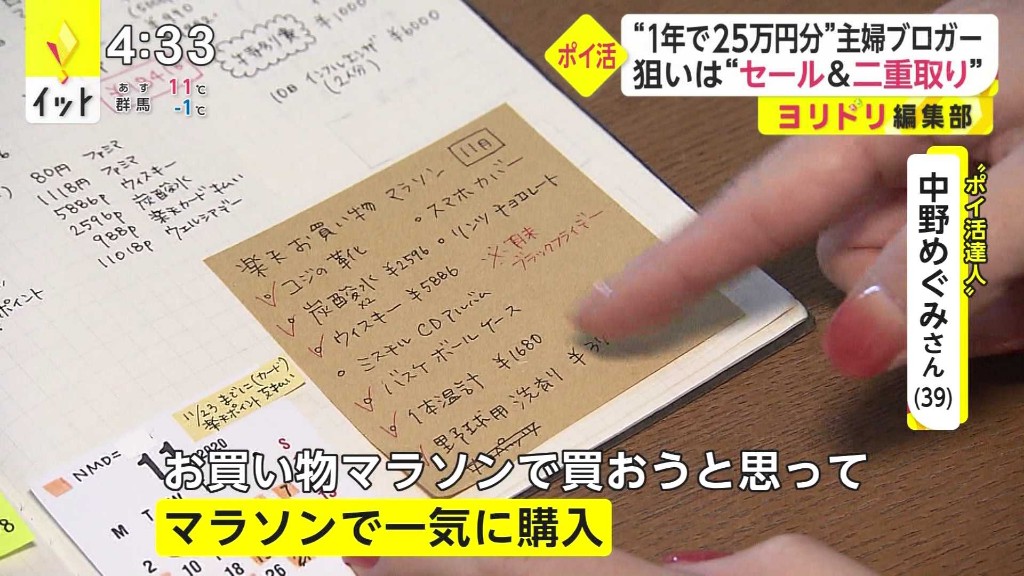 4:33
イット
あす
群馬
11℃
-1℃
ポイ活
“1年で25万円分”主婦ブロガー
狙いは“セール&二重取り”
ヨリドリ編集部
“ポイ活達人”
中野めぐみさん
(39)
¥1000
¥6000
10日 インフルエンザ
(2人分)
80円 ファミマ
1118円 ファミマ
5886P ウィスキー
2596P 炭酸水
988P 楽天カード支払い
11018P ウェルシアデー
ポイント
11月
楽天お買い物マラソン
コジの靴
炭酸水 ¥2596
x2
ウィスキー ¥5886
ミスチルCDアルバム
バスケボールケース
体温計 ¥1680
野球用洗剤 ¥
スマホカバー
リンツ チョコレート
※月末
ブラックフライデー
11/23までに(カード)
楽天ポイント支払い
NMD=
11
2020
M T S
2
9 10
16 17 18
26
8
お買い物マラソンで買おうと思って
マラソンで一気に購入